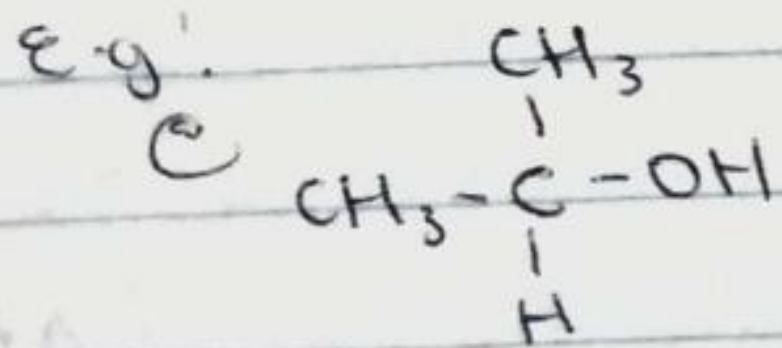 Eg:
CH3
C
CH3-C-OH
H